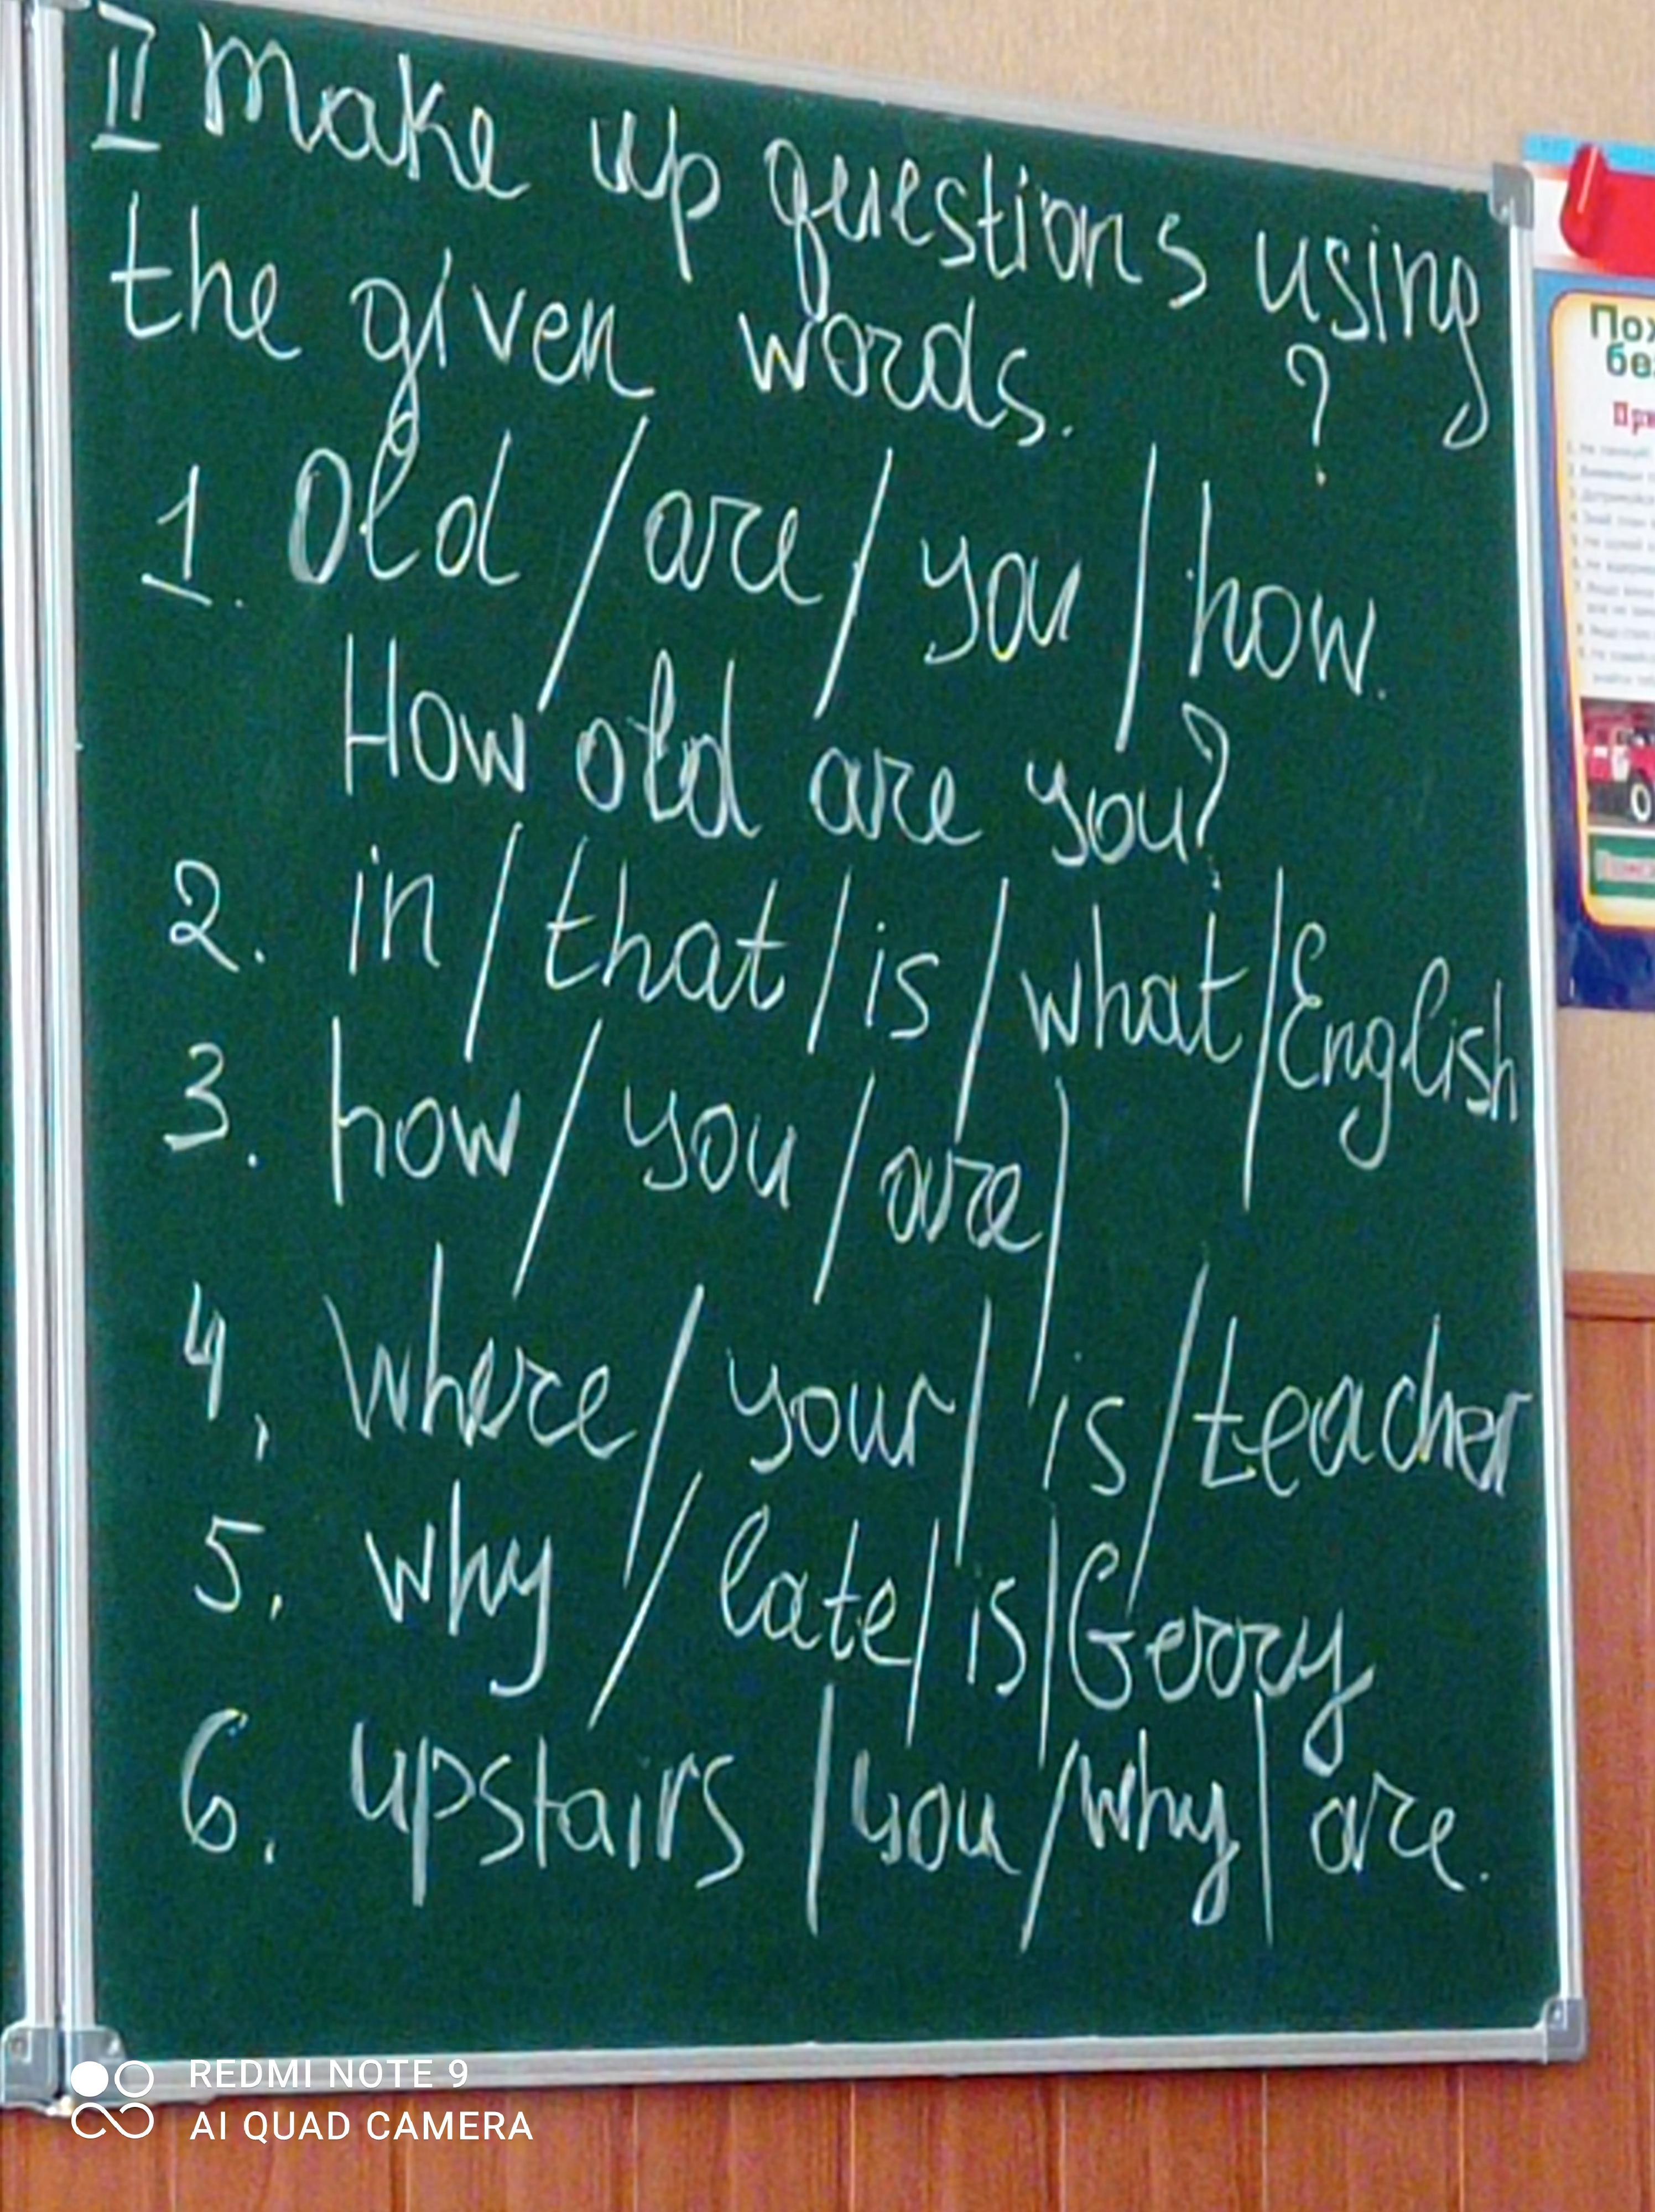 II Make up questions using
the given words. ?
1. Old / are / you / how.
How old are you?
2. in / that / is / what / English
3. how / you / are /
4. where / your / is / teacher
5. why / late / is / Gerry
6. upstairs / you / why / are.
Пож
без
При
REDMI NOTE 9
AI QUAD CAMERA